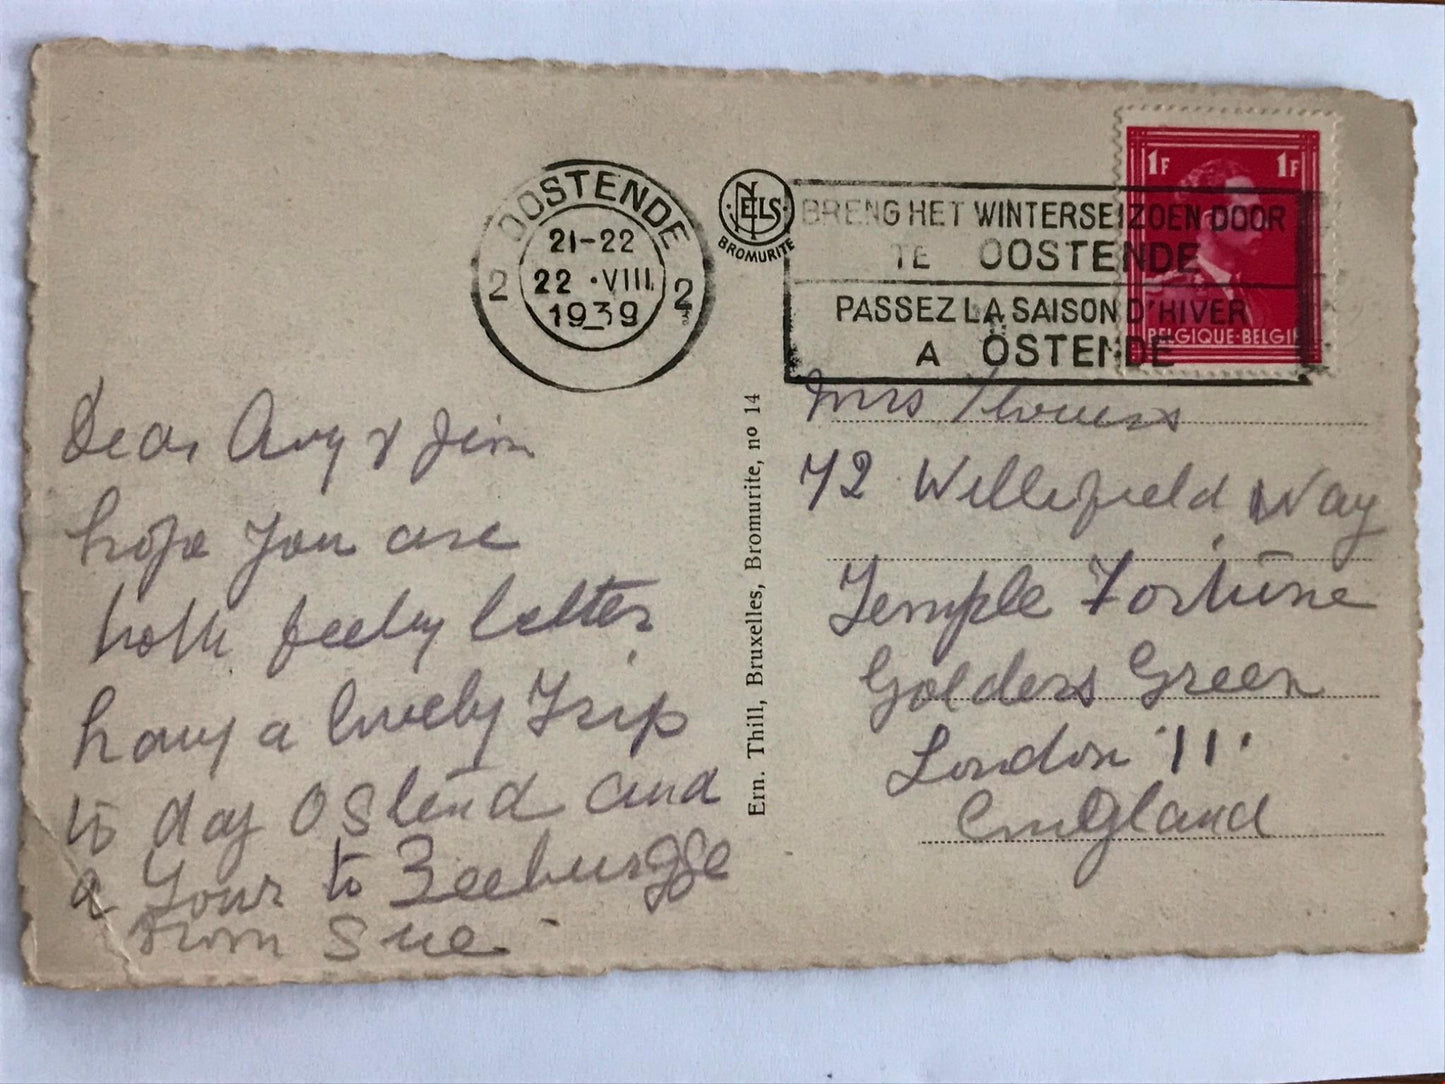 OOSTENDE
21-22
2 22 ·VIII. 2
1939
NELS
BROMURITE
BRENG HET WINTERSEIZOEN DOOR
TE OOSTENDE
PASSEZ LA SAISON D'HIVER
A OSTENDE
1F 1F
BELGIQUE·BELGIË
Dear & Jim
hope you are
both feeling better
a lovely Trip
to day Ostend and
a Tour to Zeeburgge
From Sue
Ern. Thill, Bruxelles, Bromurite, no 14
Mrs
72 Willifield Way
Temple Fortune
Golders Green
London 11.
England